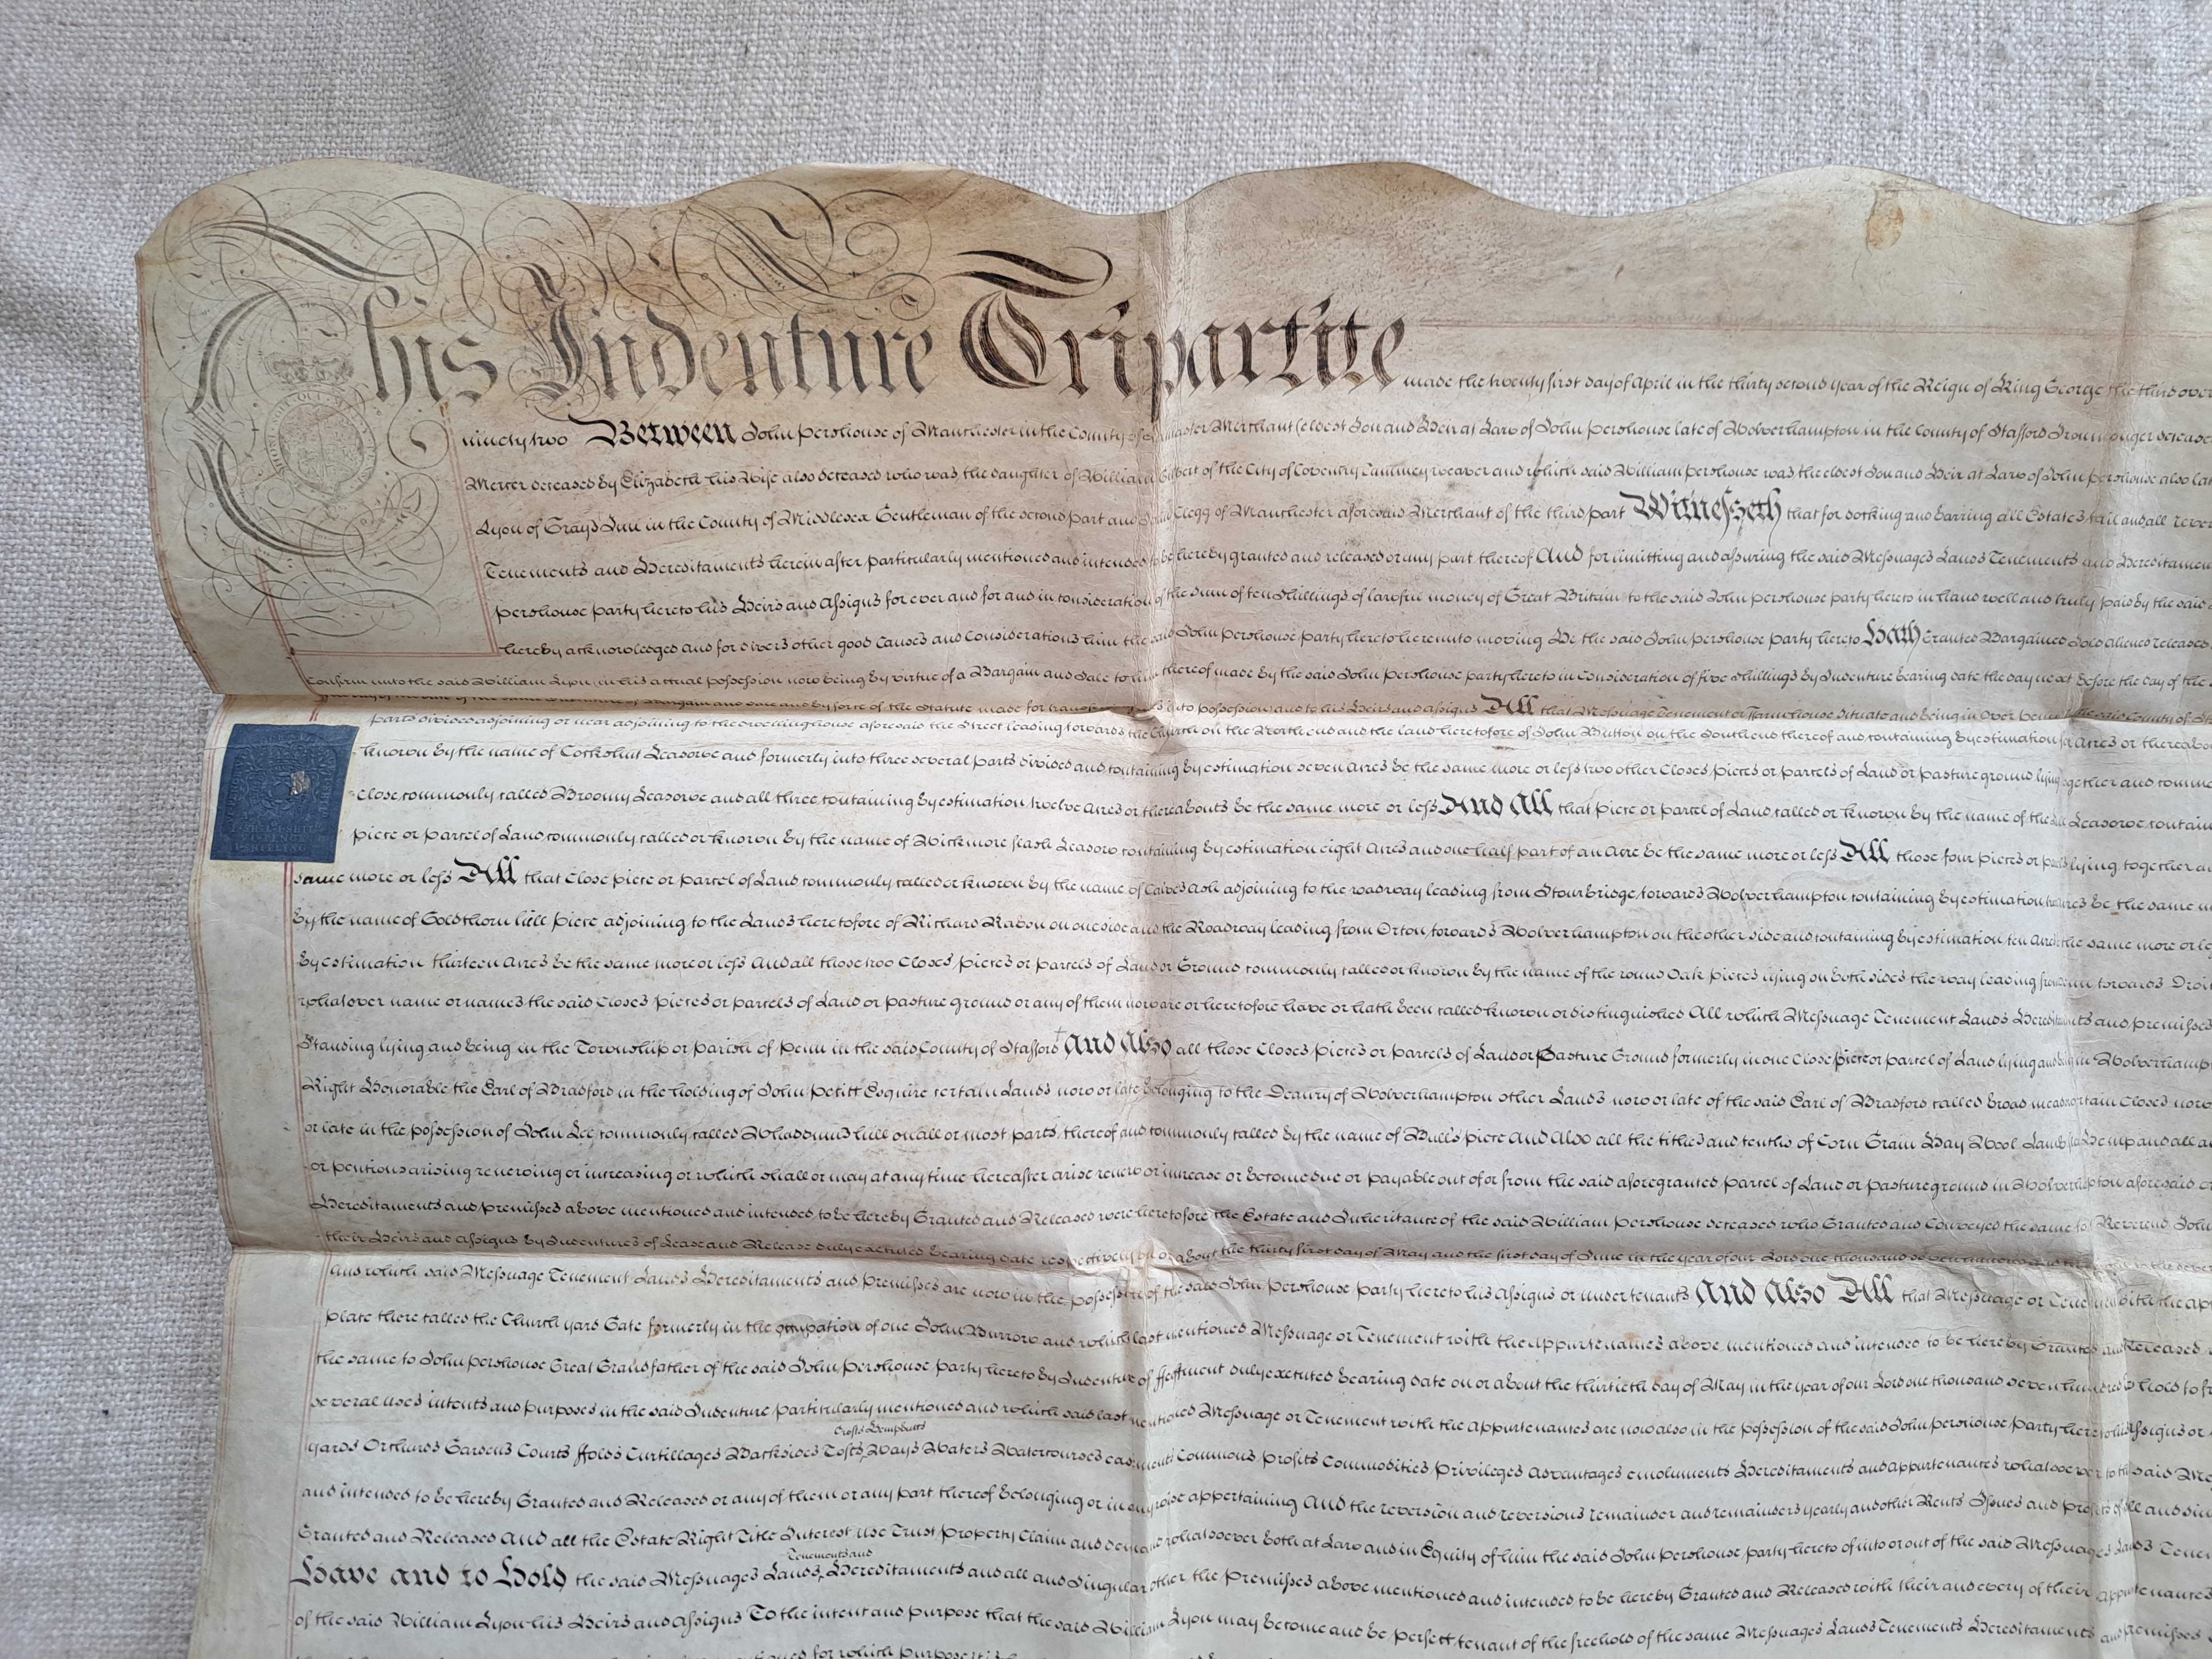 This Indenture Tripartite made the twenty first day of April in the thirty second year of the Reign of King George the third over
ninety two Between John Pershouse of Manchester in the County of Lancaster Merchant (eldest Son and Heir at Law of John Pershouse late of Wolverhampton in the County of Stafford Ironmonger deceased
Mercer deceased by Elizabeth his Wife also deceased who was the daughter of William Gilbert of the City of Coventry Tammey weaver and which said William Pershouse was the eldest Son and Heir at Law of John Pershouse also late
Lyon of Grays Inn in the County of Middlesex Gentleman of the second part and Clegg of Manchester aforesaid Merchant of the third part Witnesseth that for docking and barring all Estates tail and all rever
Tenements and Hereditaments herein after particularly mentioned and intended to be hereby granted and released or any part thereof And for limitting and assuring the said Messuages Lands Tenements and Hereditamen
Pershouse party hereto his Heirs and Assigns for ever and for and in consideration of the Sum of ten shillings of lawful money of Great Britain to the said John Pershouse party hereto in hand well and truly paid by the said
hereby acknowledged and for divers other good Causes and Considerations him the said John Pershouse party hereto hereunto moving He the said John Pershouse party hereto Hath Granted Bargained Sold aliened released
Confirm unto the said William Lyon (in his actual possession now being by virtue of a Bargain and Sale to him thereof made by the said John Pershouse party hereto in Consideration of five shillings by Indenture bearing date the day next before the day of the
Bargain and Sale and by force of the Statute made for into possession and to his Heirs and Assigns All that Messuage Tenement or Farmhouse Situate and being in Over Penn the said County of
parts divided adjoining or near adjoining to the dwellinghouse aforesaid the Street leading towards the Church on the North end and the land heretofore of John Button on the South end thereof and containing by estimation Acres or thereabo
known by the name of Cockshut Leasowe and formerly into three several parts divided and containing by estimation seven Acres be the same more or less two other Closes pieces or parcels of Land or pasture ground lying together and comm
Close commonly called Broomy Leasowe and all three containing by estimation twelve Acres or thereabouts be the same more or less And All that piece or parcel of Land called or known by the name of the Leasowe contain
piece or parcel of Land commonly called or known by the name of Wickmore slash Leasow containing by estimation eight Acres and one half part of an Acre be the same more or less All those four pieces or lying together
same more or less All that Close piece or parcel of Land commonly called or known by the name of Calves Ash adjoining to the roadway leading from Stourbridge towards Wolverhampton containing by estimation be the same
by the name of Goldthorn hill piece adjoining to the Lands heretofore of Richard Rabon on one side and the Roadway leading from Orton towards Wolverhampton on the other side and containing by estimation ten Acres the same more or le
by estimation thirteen Acres be the same more or less And all those two Closes pieces or parcels of Land or Ground commonly called or known by the name of the round Oak pieces lying on both sides the way leading from towards
whatsover name or names the said Closes pieces or parcels of Land or pasture ground or any of them now are or heretofore have or hath been called known or distinguished All which Messuage Tenement Lands Hereditaments and premisses
Standing lying and being in the Township or Parish of Penn in the said County of Stafford And Also all those Closes pieces or parcels of Land or Pasture Ground formerly in one Close piece or parcel of Land lying and being in Wolverhamp
Right Honorable the Earl of Bradford in the holding of John Petitt Esquire certain Lands now or late belonging to the Deanry of Wolverhampton other Lands now or late of the said Earl of Bradford called broad meadow certain Closes now
or late in the possession of John Lee commonly called Whaddums hill on all or most parts thereof and commonly called by the name of Bull's piece And Also all the tithes and tenths of Corn Grain Hay Wool Lamb Hemp and all
or pentions arising renewing or increasing or which shall or may at any time hereafter arise renew or increase or become due or payable out of or from the said aforegranted parcel of Land or pasture ground in Wolverhampton aforesaid
Hereditaments and premisses above mentioned and intended to be hereby Granted and Released were heretofore the Estate and Inheritance of the said William Pershouse deceased who Granted and Conveyed the same to Reverend John
their Heirs and Assigns by Indentures of Lease and Release duly executed bearing date respectively on or about the thirty first day of May and the first day of June in the year of our Lord one thousand seven hundred
And which said Messuage Tenement Lands Hereditaments and premisses are now in the possession of the said John Pershouse party hereto his Assigns or undertenants And Also All that Messuage or Tenement with the
place there called the Church yard Gate formerly in the occupation of one John Burrow and which last mentioned Messuage or Tenement with the Appurtenances above mentioned and intended to be hereby Granted and Released
the same to John Pershouse Great Grandfather of the said John Pershouse party hereto by Indenture of ffeoffment duly executed bearing date on or about the thirtieth day of May in the year of our Lord one thousand seven hundred hold to
several uses intents and purposes in the said Indenture particularly mentioned and which said last mentioned Messuage or Tenement with the appurtenances are now also in the possession of the said John Pershouse party hereto his Assigns or
Crofts Hempbutts
yards Orchards Gardens Courts ffolds Curtillages Backsides Tofts Ways Waters Watercourses easements Commons profits Commodities privileges advantages emoluments Hereditaments and appurtenances whatsoever to the said
and intended to be hereby Granted and Released or any of them or any part thereof belonging or in anywise appertaining And the reversion and reversions remainder and remainders yearly and other Rents Issues and profits of all and
Granted and Released And all the Estate Right Title Interest use Trust property Claim and demand whatsoever both at Law and in Equity of him the said John Pershouse party hereto of into or out of the said Messuages Lands
Tenements and
Have and to Hold the said Messuages Lands Hereditaments and all and Singular other the Premisses above mentioned and intended to be hereby Granted and Released with their and every of their Appurtenances
of the said William Lyon his Heirs and Assigns To the intent and purpose that the said William Lyon may become and be perfect tenant of the freehold of the same Messuages Lands Tenements Hereditaments and premisses
for which purpose
HONI SOIT QUI
I SHILLING